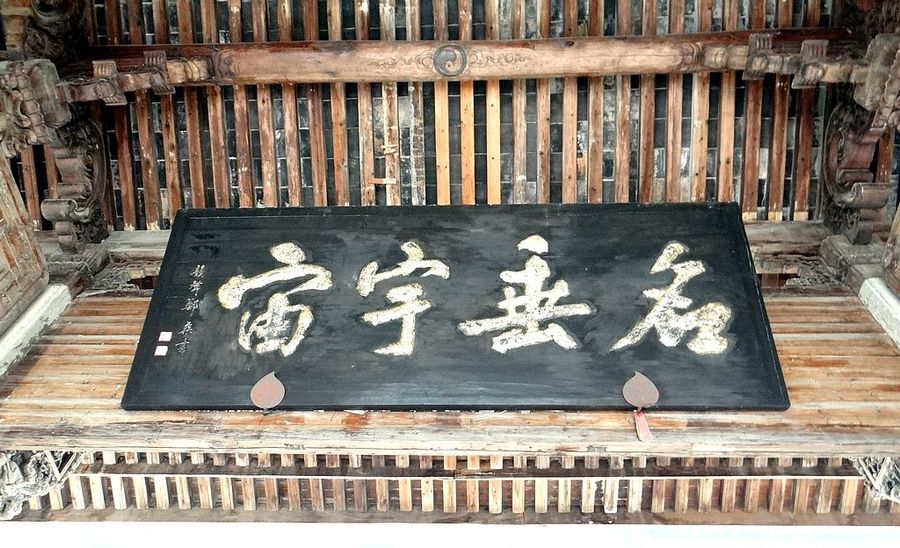 名垂宇宙